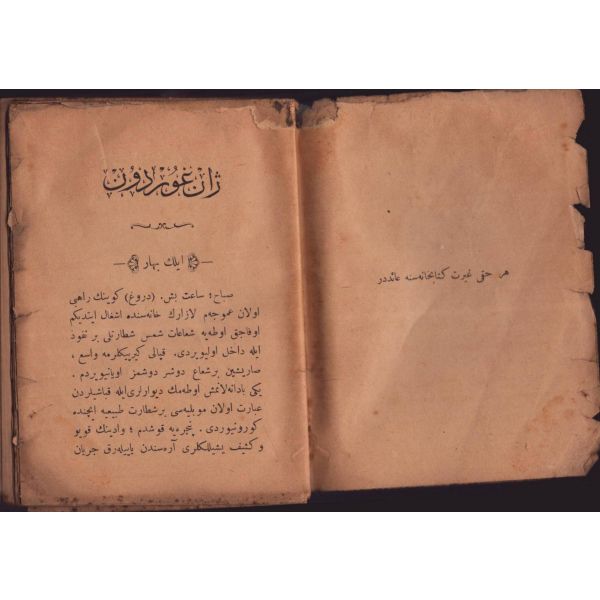 هر حقی غیرت کتابخانه‌سنه عائددر
ژان غوردون
ایلك بهار
صباح؛ ساعت بش. (دروغ) کوینك راهبی
اولان عموجه‌م لازارك خانه‌سنده اشغال ایتدیکم
اوفاجق اوطه‌یه شعاعات شمس شطارتلی بر نفوذ
ایله داخل اولیوردی. قپالی کیرپیکلرمه واسع،
صاریشین بر شعاع دوشر دوشمز اویانیویردم.
یکی بادانه‌لانمش اوطه‌مك دیوارلری‌ایله قباشیلردن
عبارت اولان موبلیه‌سی بر شطارت طبیعیه ایچنده
کورونیوردی. پنجره‌یه قوشدم؛ وادینك قویو
و کثیف یشیللکلری آره‌سندن یاییله‌رق جریان